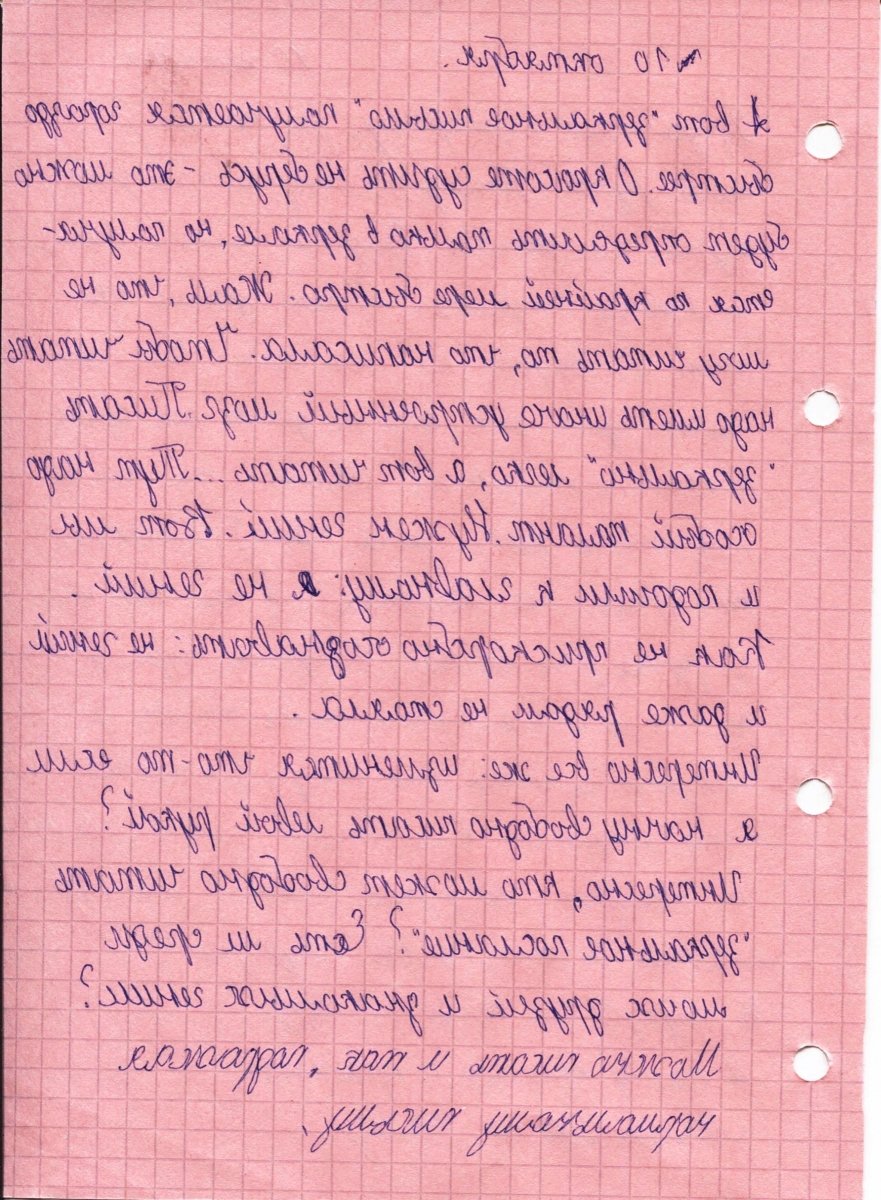 10 октября.
А вот "зеркальное письмо" получается гораздо
быстрее. О красоте судить не берусь - это можно
будет определить только в зеркале, но получа-
ется по крайней мере быстро. Жаль, что не
могу читать то, что написала. Чтобы читать
надо иметь иначе устроенный мозг. Писать
"зеркально" легко, а вот читать... Тут надо
особый талант. Нужен гений. Вот мы
и подошли к главному: я не гений.
Как не прискорбно осознавать: не гений
и даже рядом не стояла.
Интересно все же: изменится что-то если
я начну свободно писать левой рукой?
Интересно, кто может свободно читать
"зеркальное послание"? Есть ли среди
моих друзей и знакомых гении?
Можно писать и так,